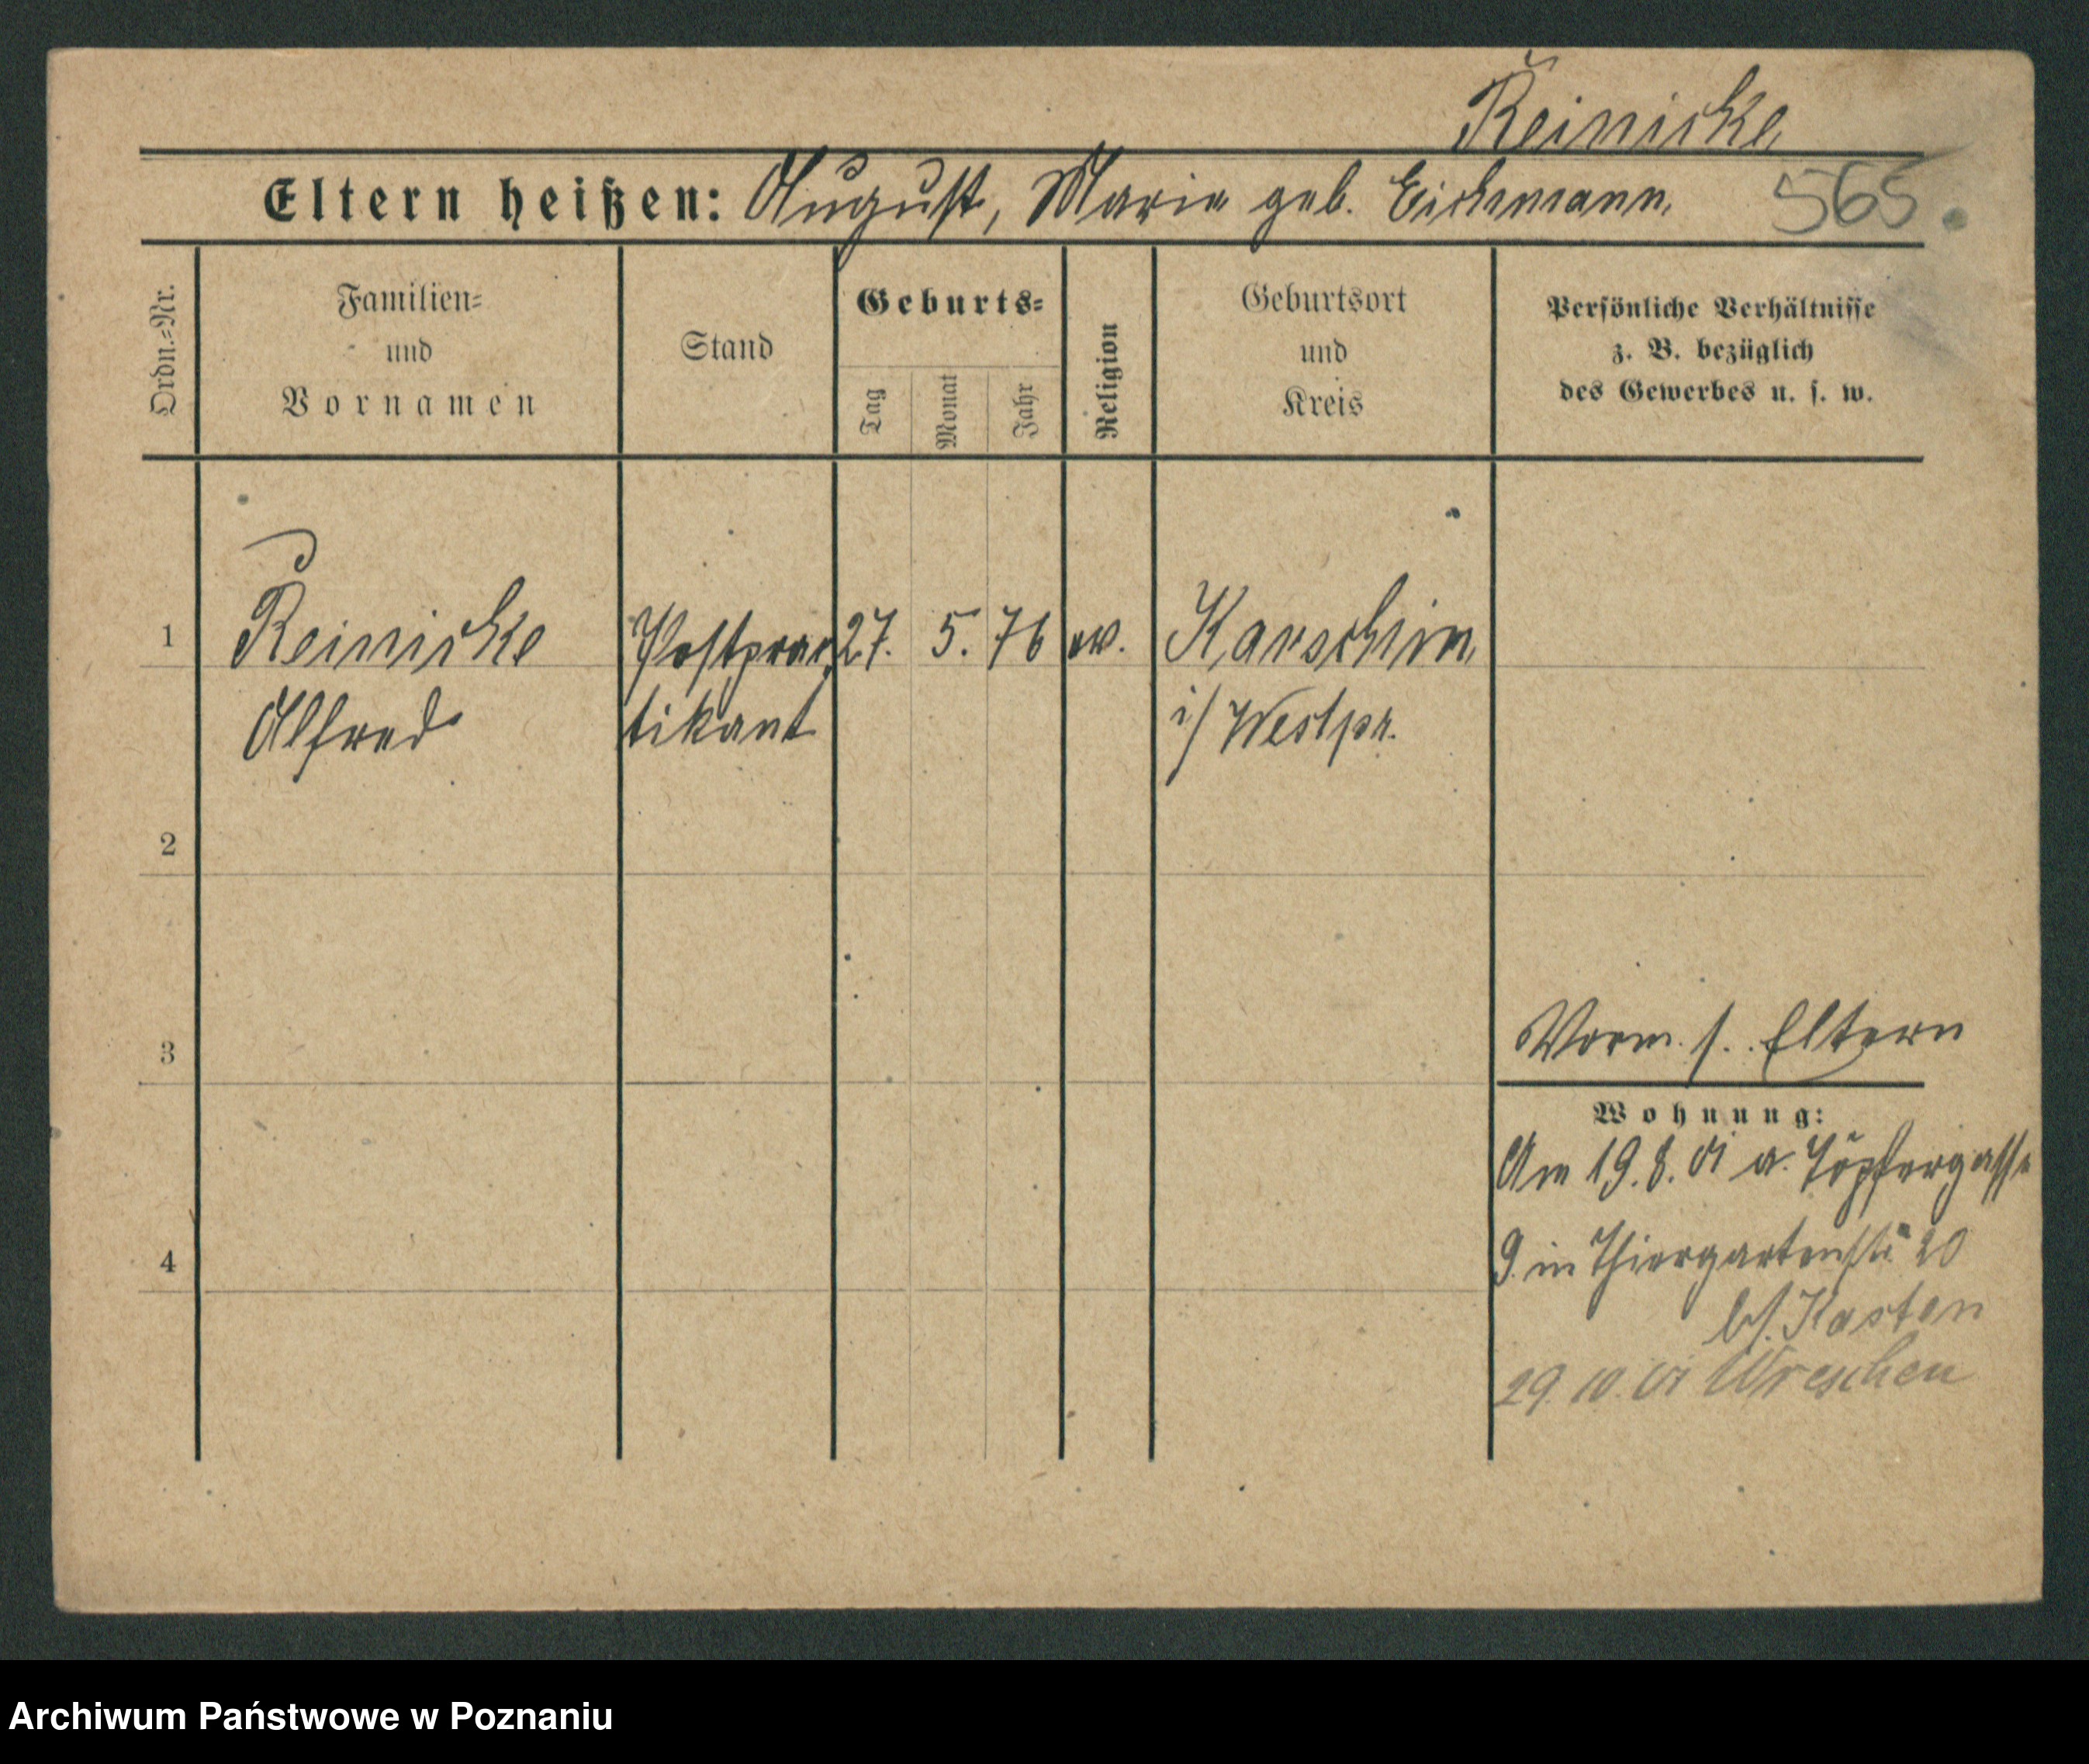 Reinicke
Eltern heißen: August, Marie geb. Eichmann. 565.
Ordn.=Nr.
Familien=
und
Vornamen
Stand
Geburts=
Tag
Monat
Jahr
Religion
Geburtsort
und
Kreis
Persönliche Verhältnisse
z. B. bezüglich
des Gewerbes u. s. w.
1 Reinicke Postprac 27. 5. 76 ev. Karschin
Alfred tikant i/ Westpr.
2
3
Vorm. s. Eltern
Wohnung:
Am 19.8.01 a. Töpfergasse
9. in Thiergartenstr 20
4
b/. Kasten
29.10.01 Wreschen
Archiwum Państwowe w Poznaniu